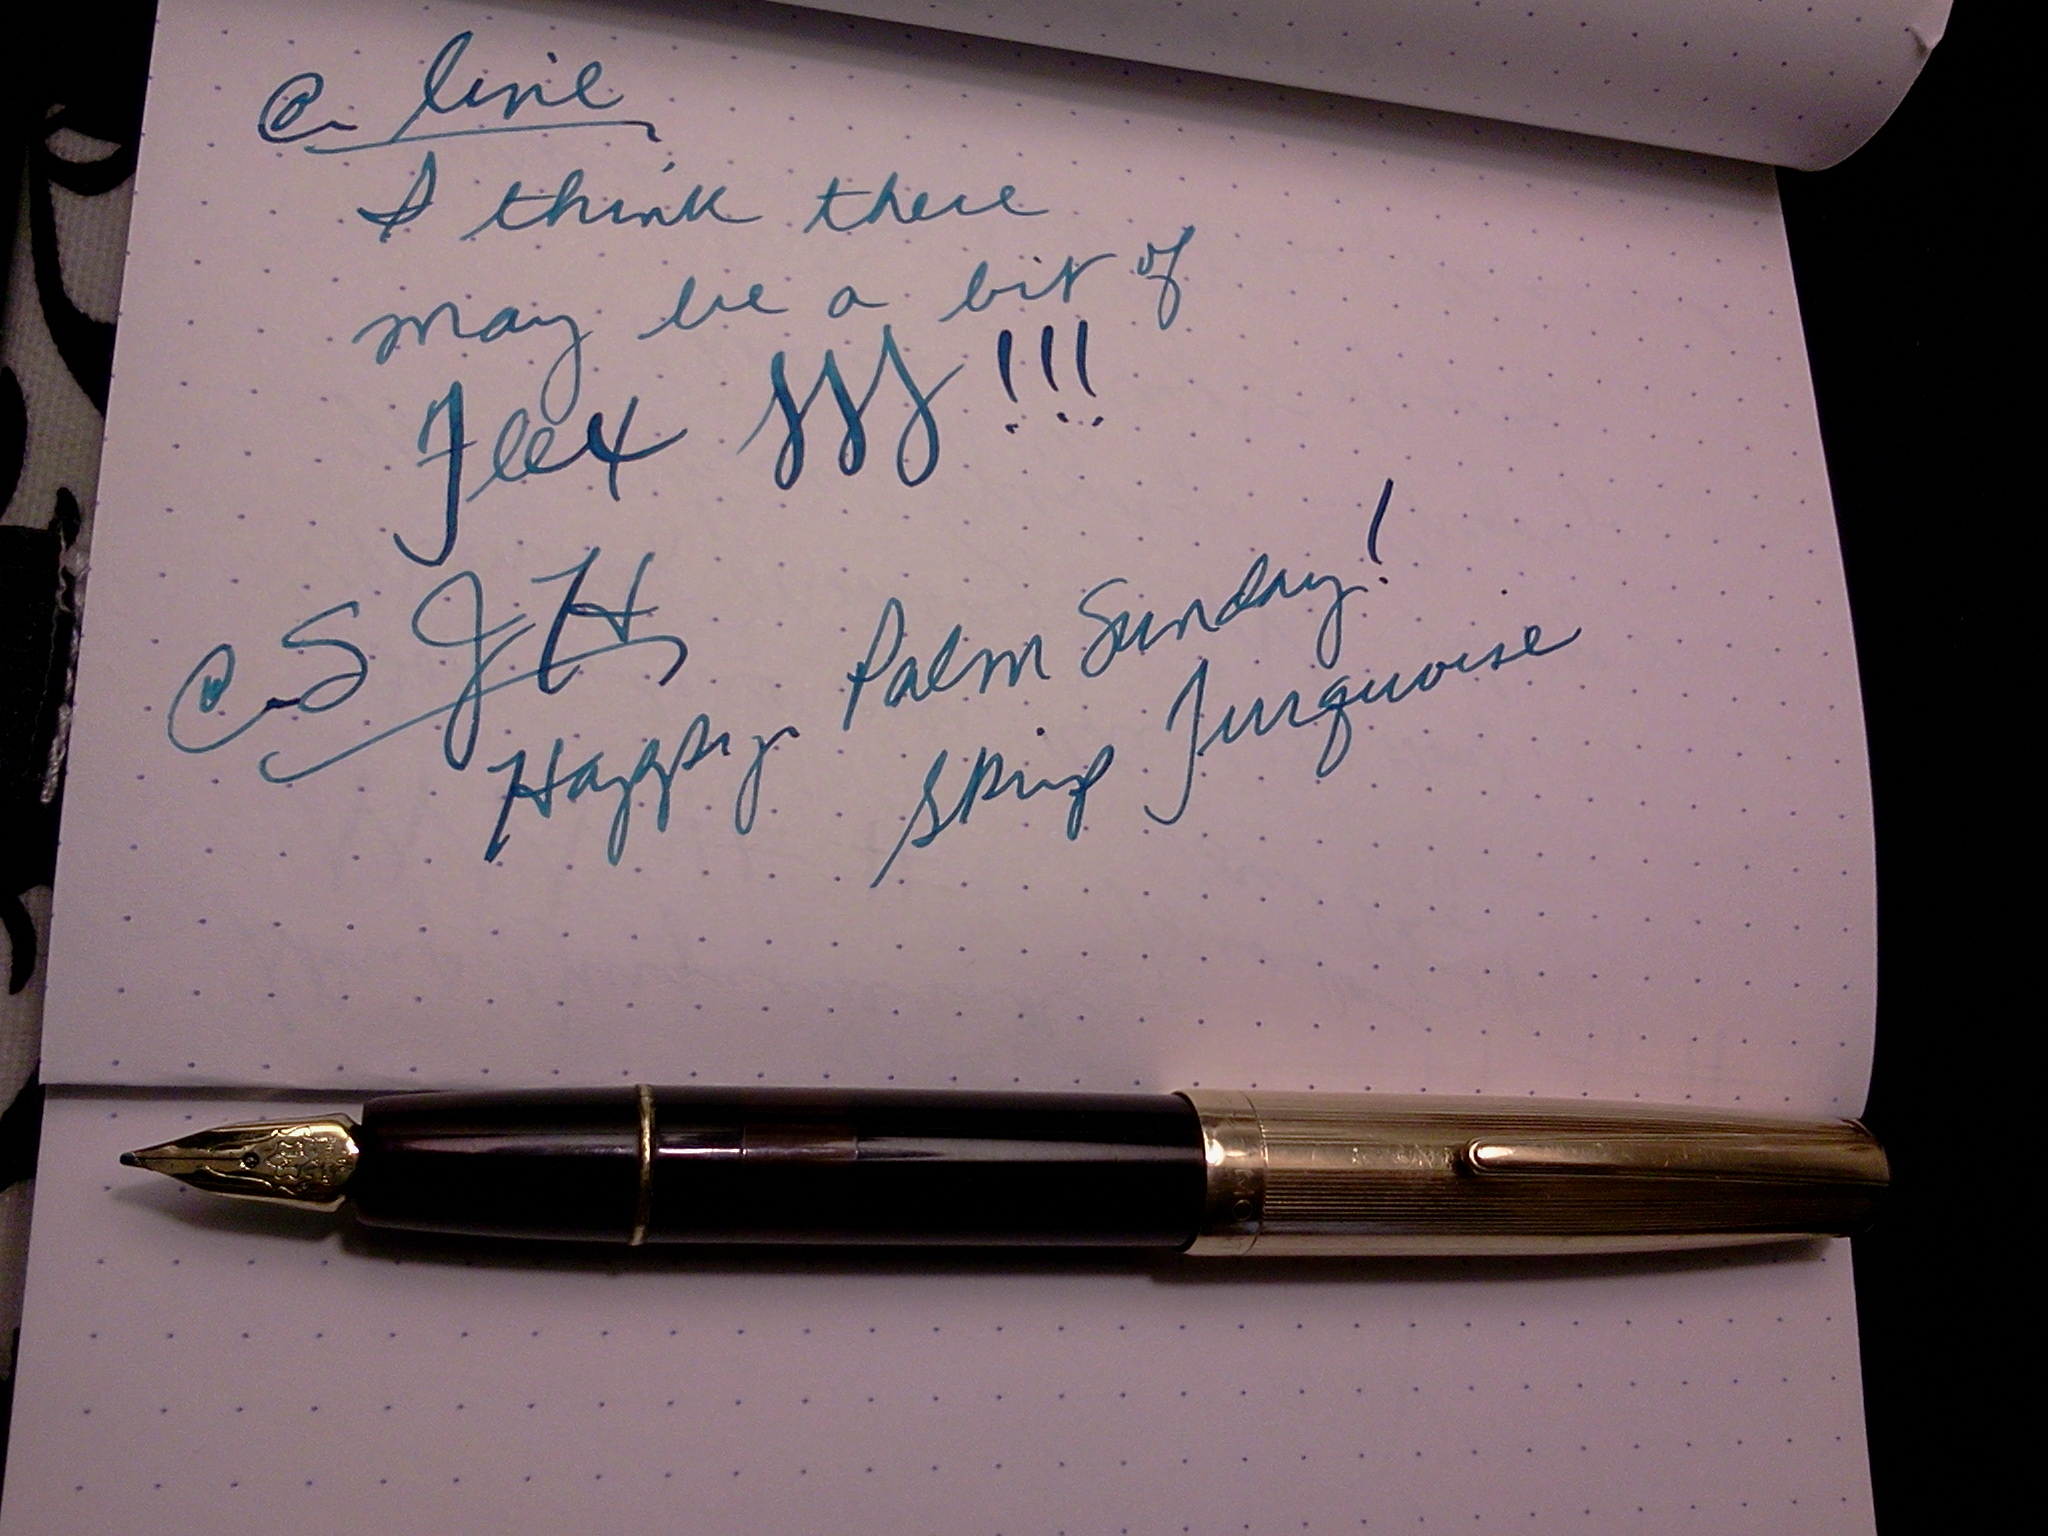 @ line
I think there
may be a bit of
Flex fff !!!
@ SJH
Happy Palm Sunday!
Turquoise